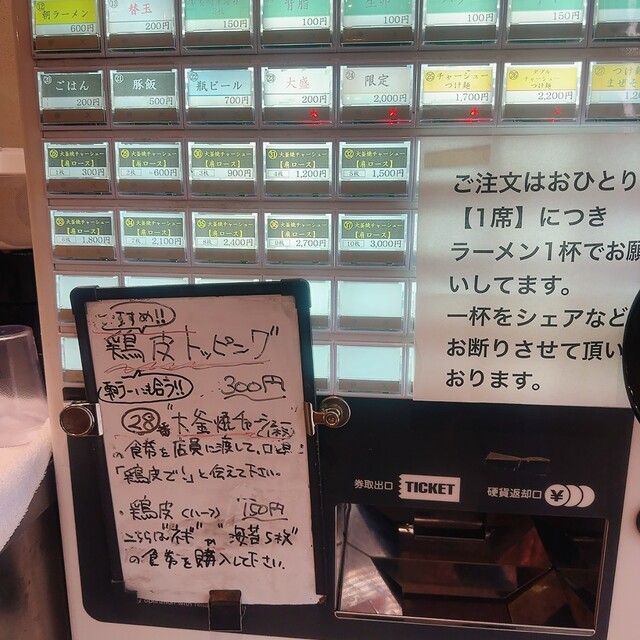 朝ラーメン
600円
替玉
150円
100円
100円
200円
150円
ごはん
200円
豚飯
500円
瓶ビール
700円
大盛
200円
限定
2,000円
チャーシュー
つけ麺
1,700円
ダブル
チャーシュー
つけ麺
2,200円
大釜焼チャーシュー
【肩ロース】
1枚 300円
大釜焼チャーシュー
【肩ロース】
2枚 600円
大釜焼チャーシュー
【肩ロース】
3枚 900円
大釜焼チャーシュー
【肩ロース】
4枚 1,200円
大釜焼チャーシュー
【肩ロース】
5枚 1,500円
大釜焼チャーシュー
【肩ロース】
6枚 1,800円
大釜焼チャーシュー
【肩ロース】
7枚 2,100円
大釜焼チャーシュー
【肩ロース】
8枚 2,400円
大釜焼チャーシュー
【肩ロース】
9枚 2,700円
大釜焼チャーシュー
【肩ロース】
10枚 3,000円
ご注文はおひとり
【1席】につき
ラーメン1杯でお願
いしてます。
一杯をシェアなど
お断りさせて頂い
おります。
おすすめ!!
鶏皮トッピング
朝ラーにも合う!!
300円
28番"大釜焼チャーシュー(1枚)"
の食券を店員に渡して、口頭
「鶏皮で!」と伝えて下さい
・鶏皮(ハーフ) 150円
こちらは"ネギ"や"海苔5枚"
の食券を購入して下さい。
券取出口
TICKET
硬貨返却口
¥